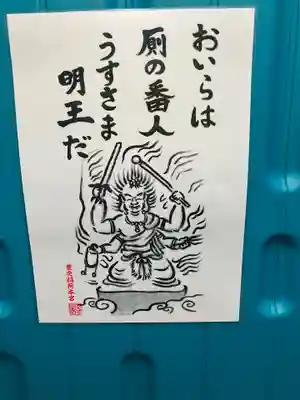 おいらは
厠の番人
うすさま
明王だ